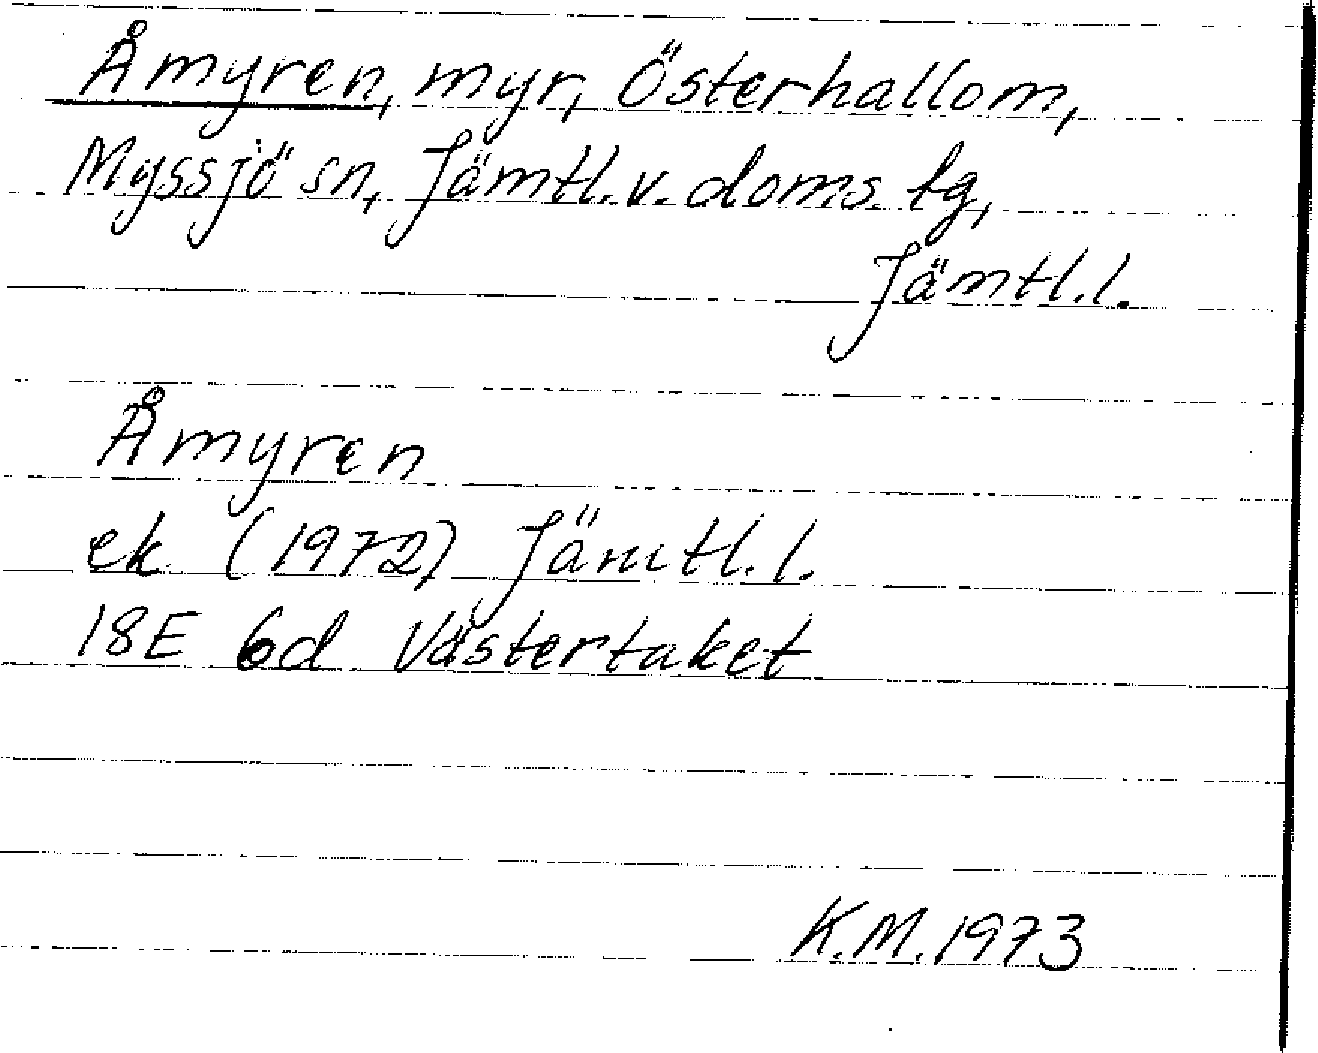 Åmyren, myr, Österhallom,
Myssjö sn, Jämtl. v. doms. lg,
Jämtl. l.
Åmyren
ek (1972) Jämtl. l.
18E 6d Västertaket
K.M. 1973